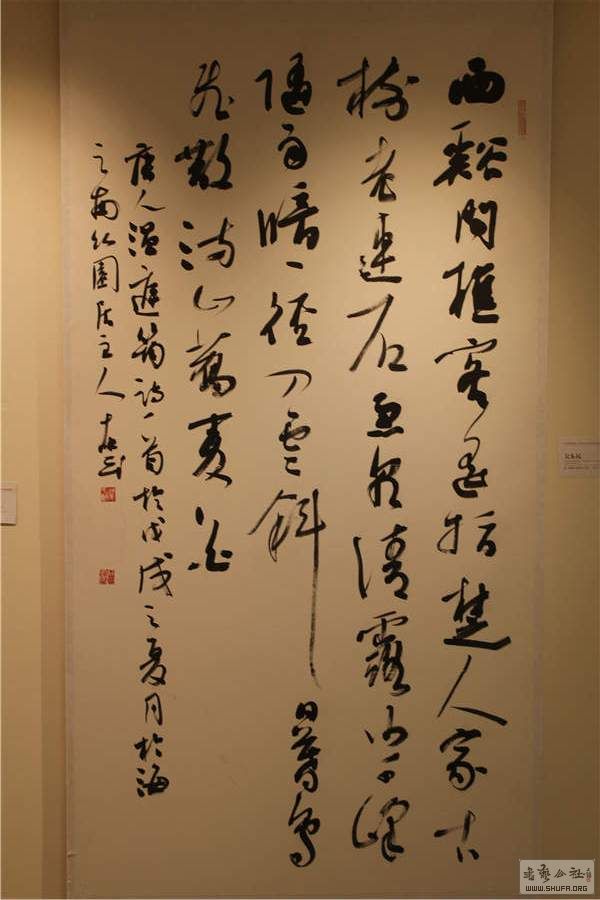 西谿問樵客遥指楚人家古
樹老連石急泉清露沙千峰
随雨暗一径入雲斜日暮鳥
飛散满山蕎麥花
唐人温庭筠詩一首於戊戌之夏月於海
之南竹園居主人
書藝公社
WWW.SHUFA.ORG